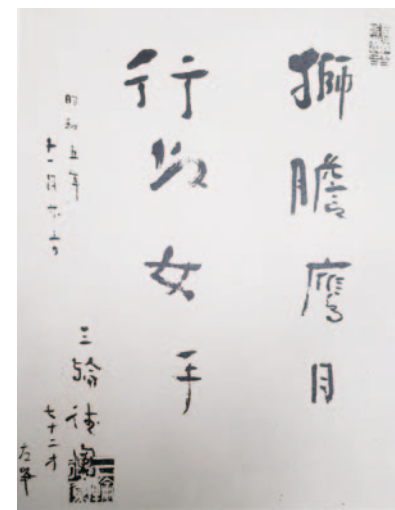 獅膽鷹目
行以女手
昭和五年
十一月
三輪徳寛
七十二才
左筆